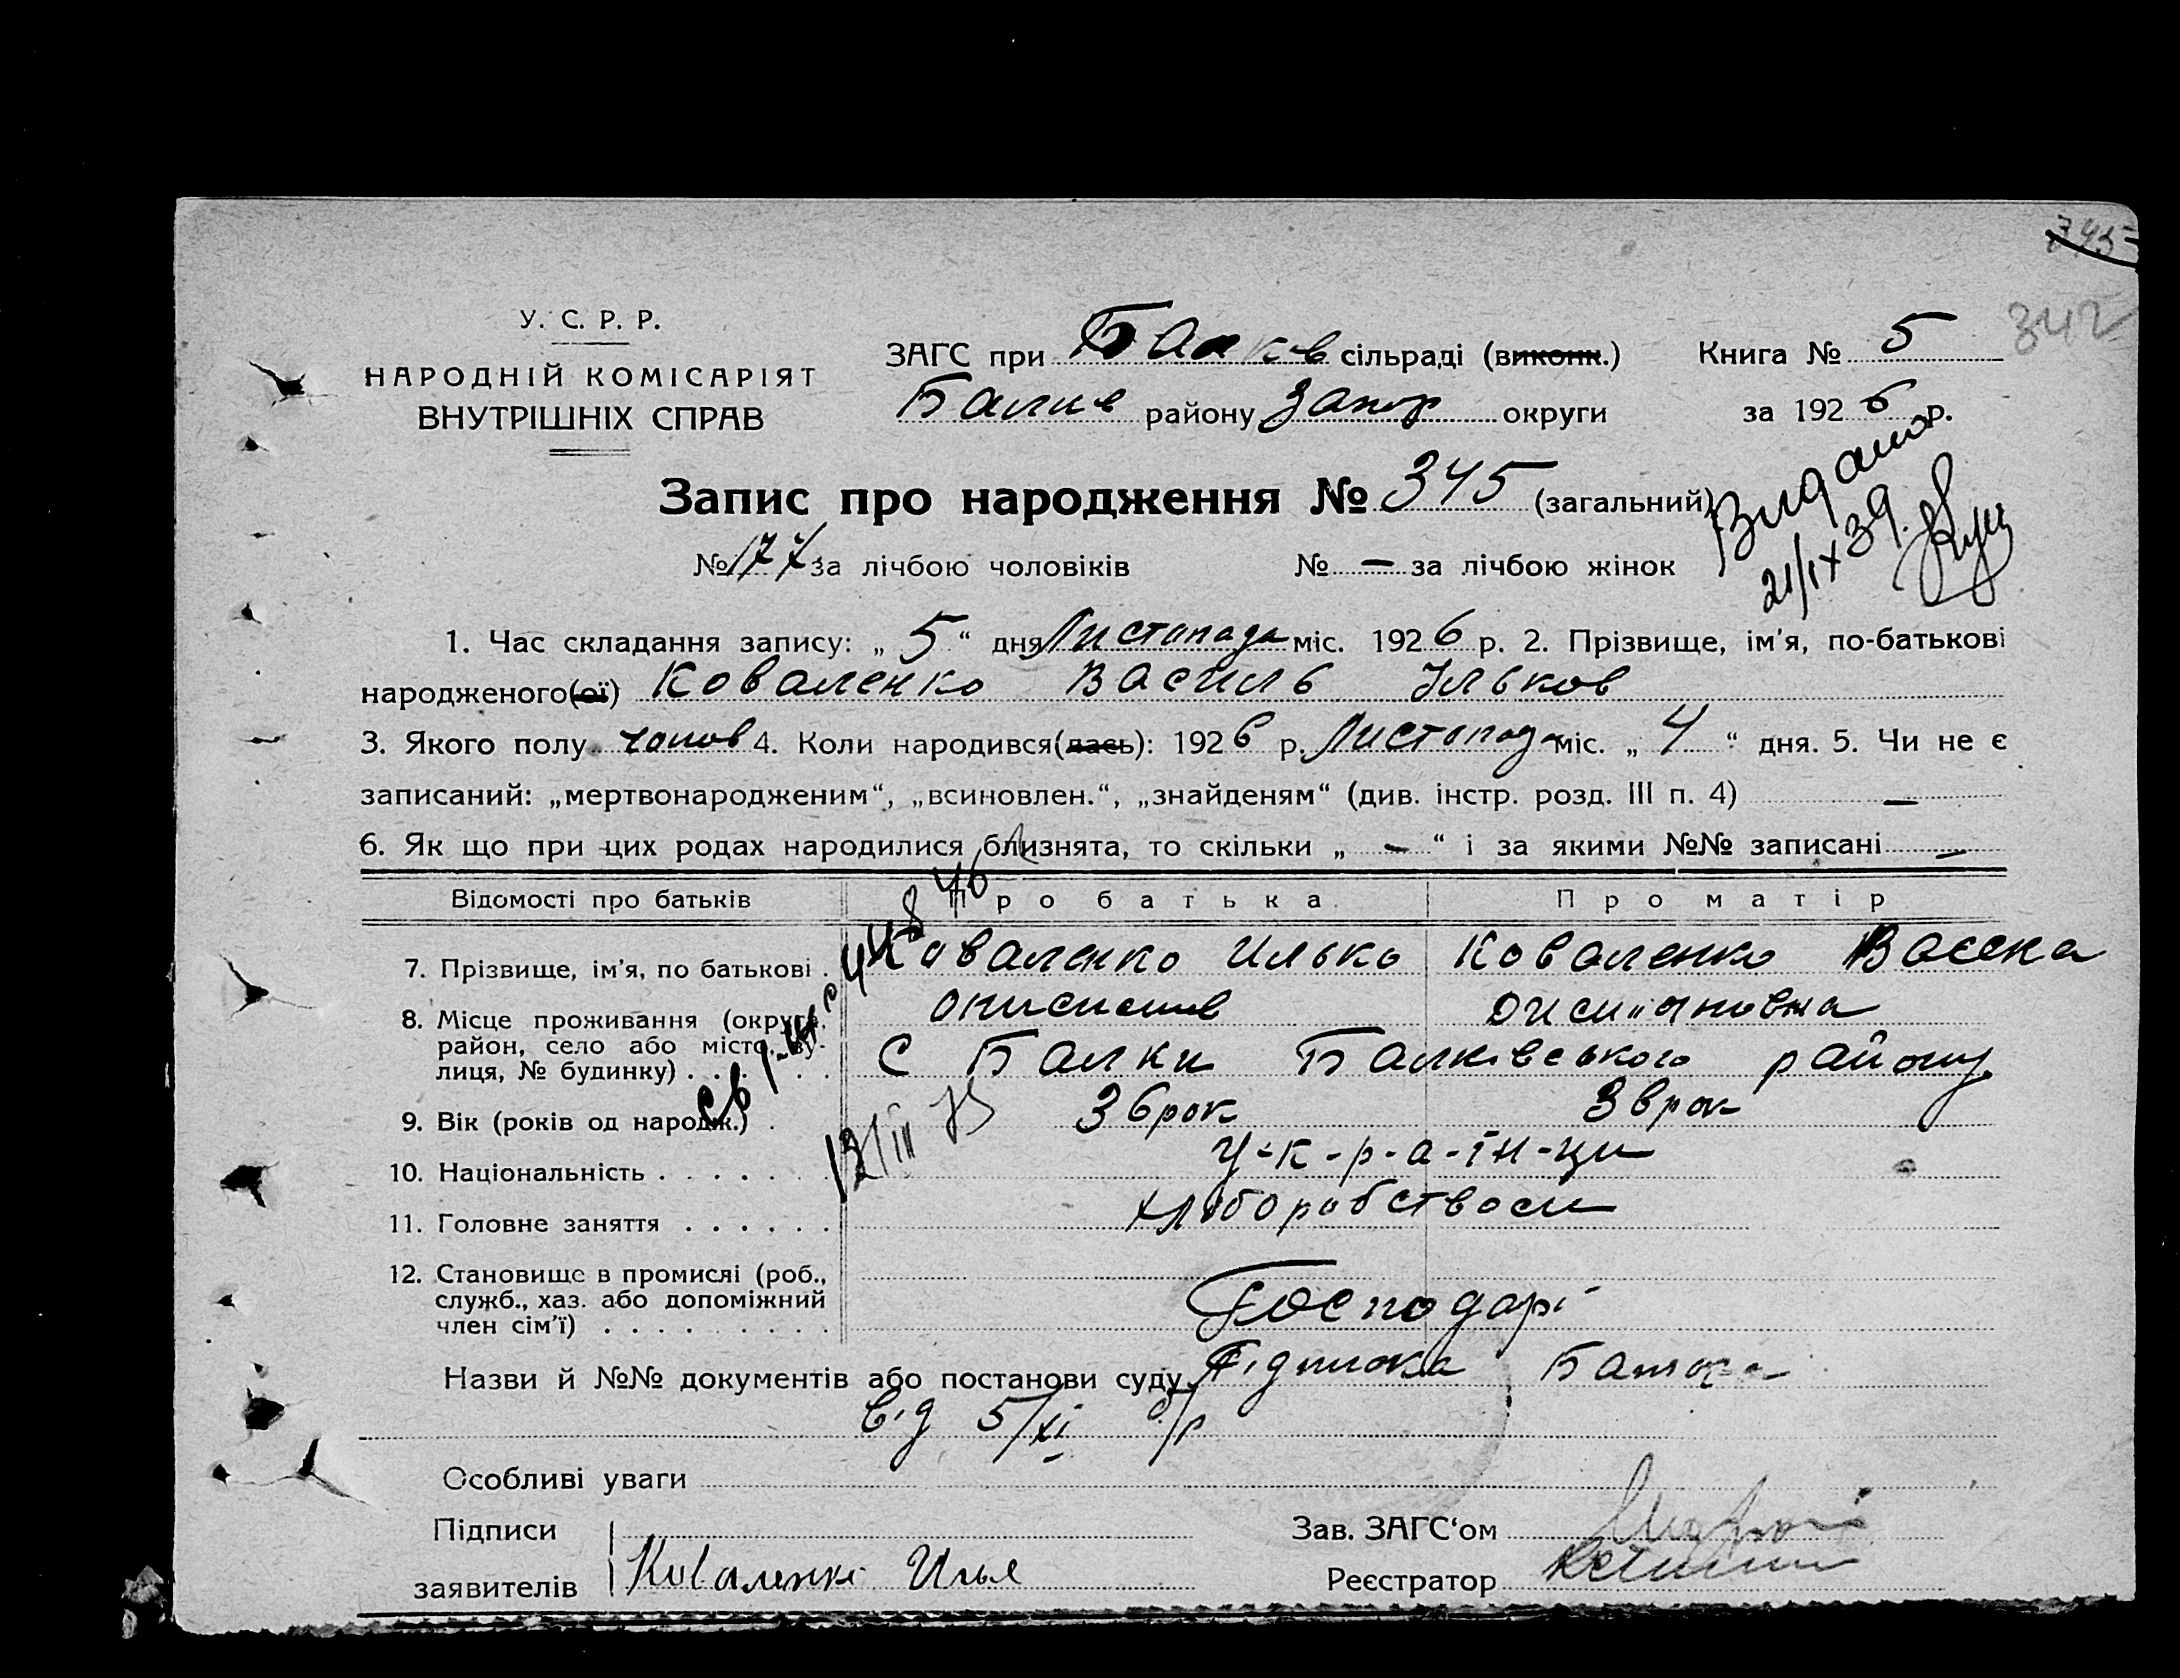 345
342
У. С. Р. Р.
НАРОДНІЙ КОМІСАРІЯТ
ВНУТРІШНІХ СПРАВ
ЗАГС при Балков сільраді (виконк.) Книга № 5
Балків району Запор округи за 1926 р.
Запис про народження № 345 (загальний)
Видано
21/IX 39.
№ 177 за лічбою чоловіків № — за лічбою жінок
1. Час складання запису: „ 5 “ дня Листопада міс. 1926 р. 2. Прізвище, ім'я, по-батькові
народженого(ої) Коваленко Василь Ільков
3. Якого полу чолов 4. Коли народився(лась): 1926 р. Листопада міс. „ 4 “ дня. 5. Чи не є
записаний: „мертвонародженим“, „всиновлен.“, „знайденям“ (див. інстр. розд. III п. 4) —
6. Як що при цих родах народилися близнята, то скільки „ — “ і за якими №№ записані —
Відомості про батьків Про батька Про матір
7. Прізвище, ім'я, по батькові . Коваленко Илько Коваленко
8. Місце проживання (округа, район, село або місто, вулиця, № будинку) . . . . С Балки Балківського району
9. Вік (років од народж.) . 36 рок 3 рок
12/III 75
10. Національність . . . . . . . У-к-р-а-їн-ци
11. Головне заняття . . . . . . хліборобством
12. Становище в промислі (роб., служб., хаз. або допоміжний член сім'ї) . . . . . . . . . Господарі
Назви й №№ документів або постанови суду Підписка Батька
від 5/XI б/р
Особливі уваги
Підписи
заявителів Коваленко Илья
Зав. ЗАГС'ом
Реєстратор